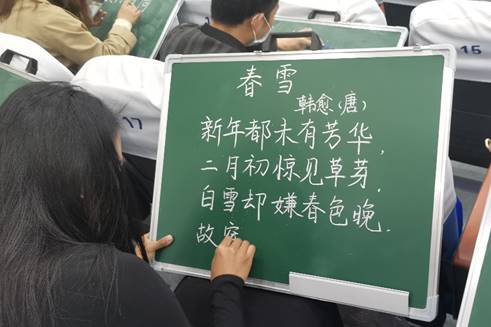 春雪
韩愈(唐)
新年都未有芳华,
二月初惊见草芽,
白雪却嫌春色晚.
故
17
15